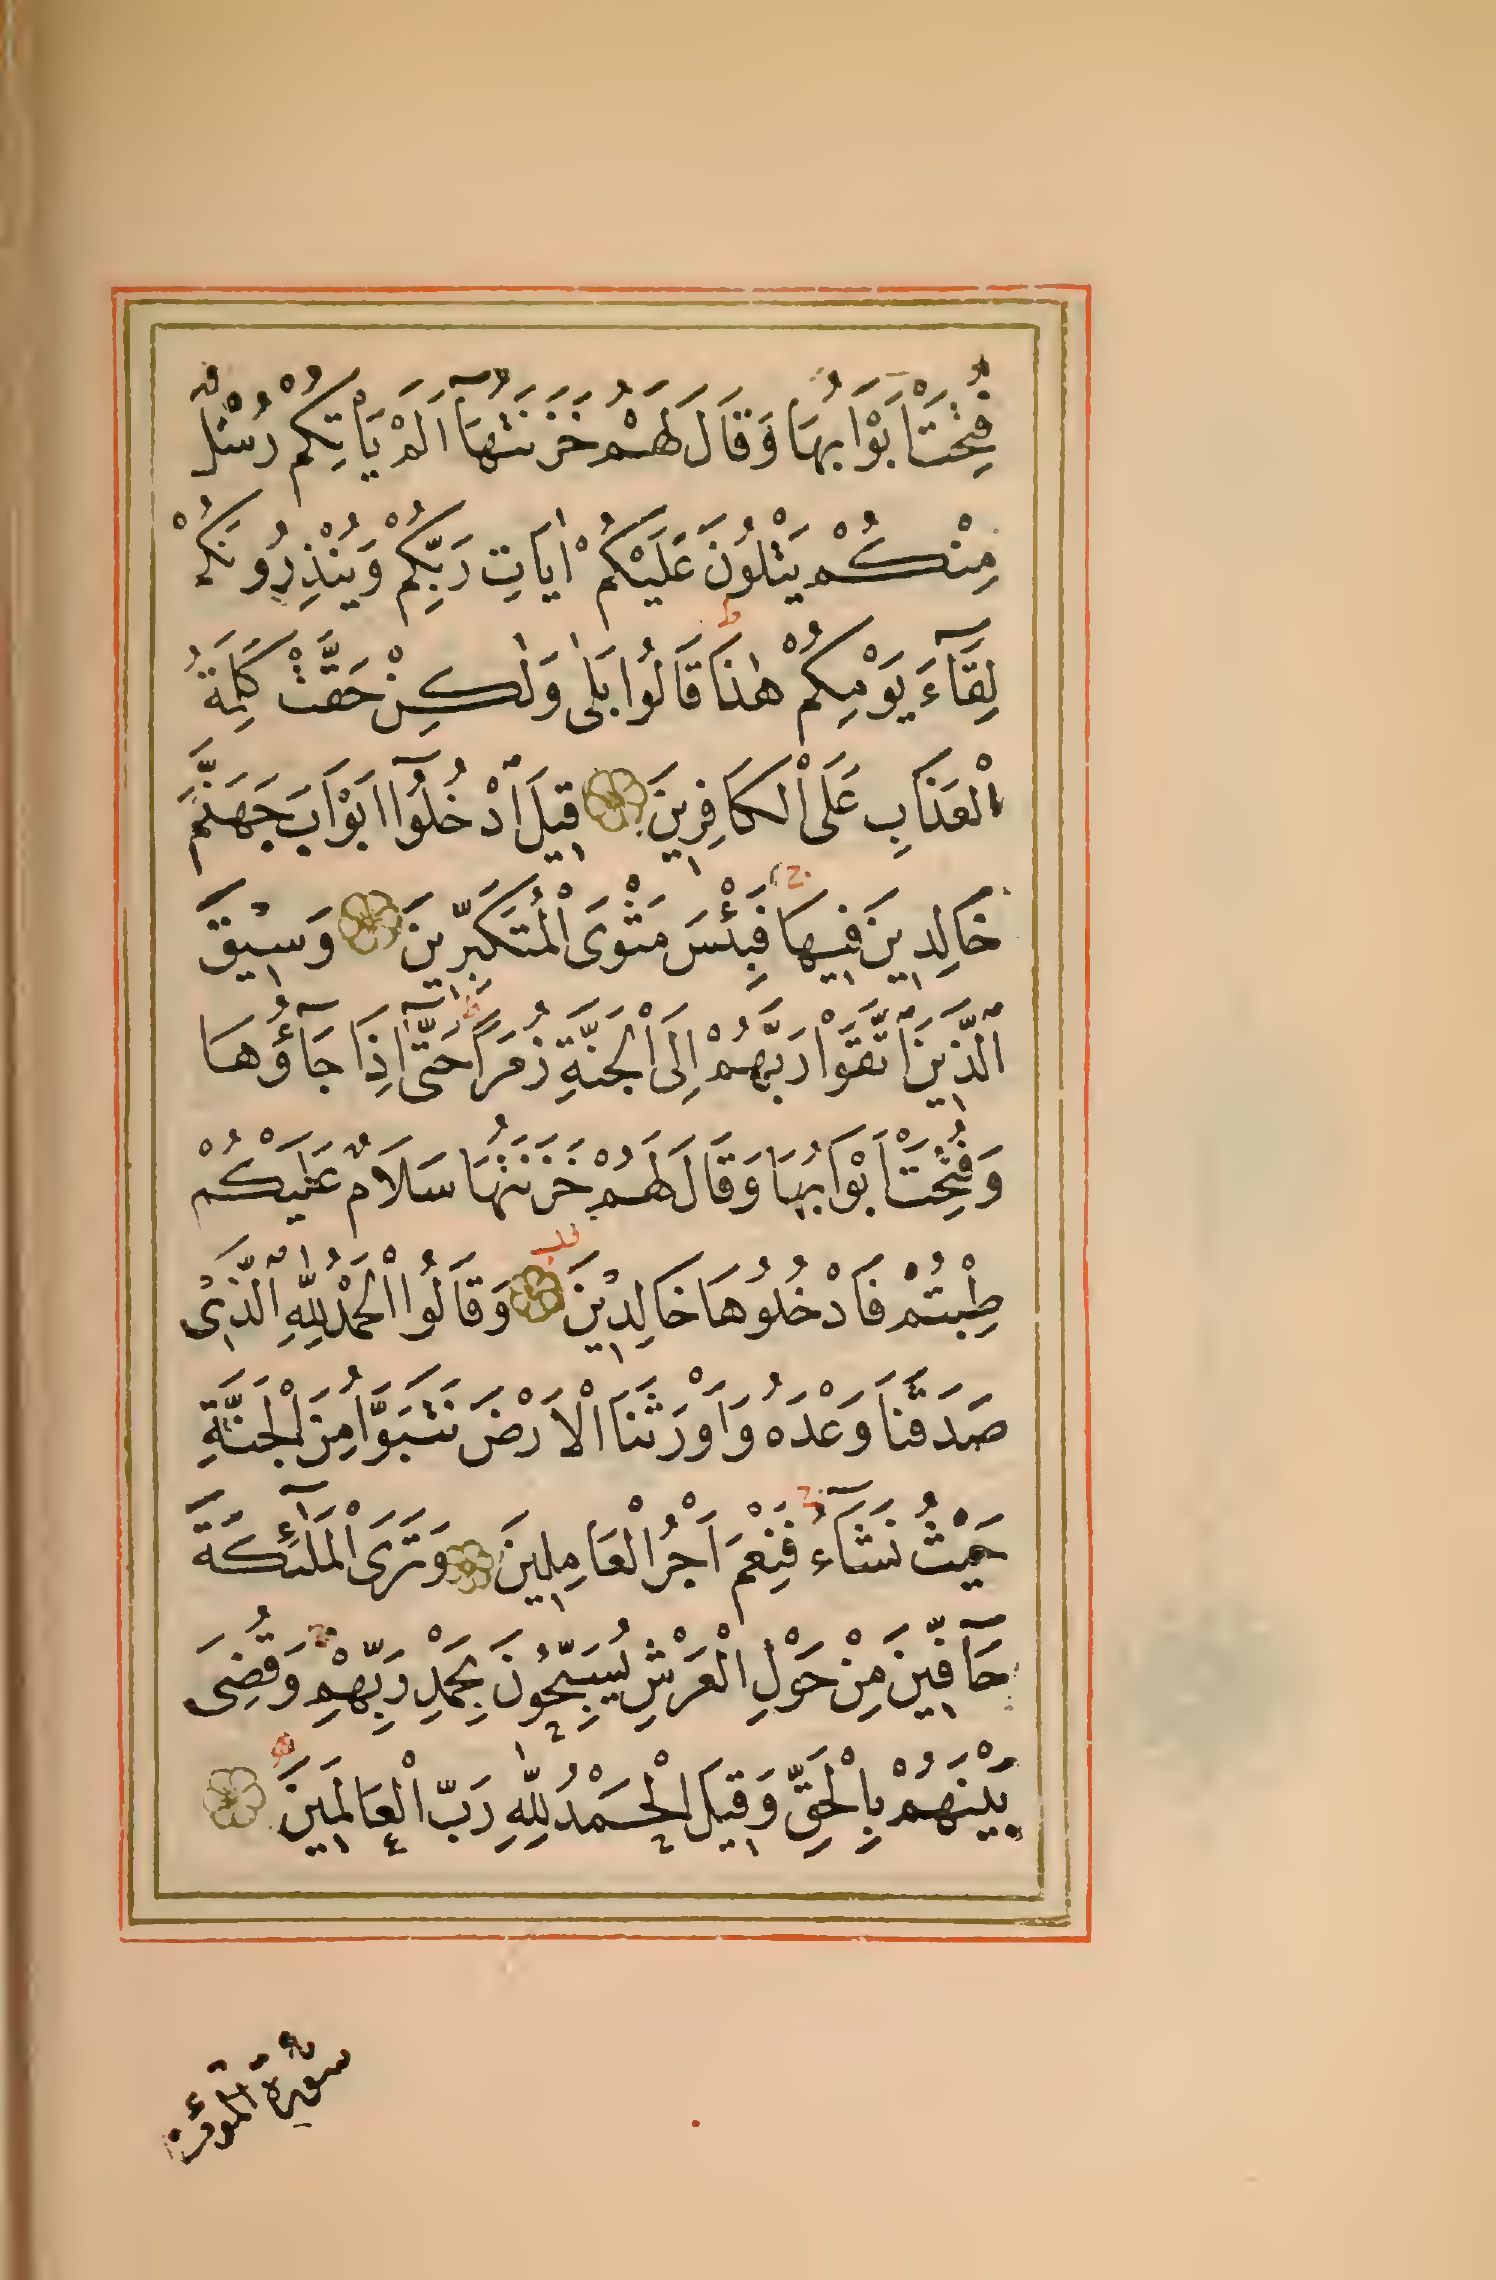 فُتِحَتْ اَبْوَابُهَا وَقَالَ لَهُمْ خَزَنَتُهَآ اَلَمْ يَاْتِكُمْ رُسُلٌ
مِنْكُمْ يَتْلُونَ عَلَيْكُمْ اٰيَاتِ رَبِّكُمْ وَيُنْذِرُونَكُمْ
لِقَآءَ يَوْمِكُمْ هٰذَا قَالُوا بَلٰى وَلٰكِنْ حَقَّتْ كَلِمَةُ
الْعَذَابِ عَلَى الْكَافِرِينَ قِيلَ ادْخُلُوٓا اَبْوَابَ جَهَنَّمَ
خَالِدِينَ فِيهَا فَبِئْسَ مَثْوَى الْمُتَكَبِّرِينَ وَسِيقَ
الَّذِينَ اتَّقَوْا رَبَّهُمْ اِلَى الْجَنَّةِ زُمَرًا حَتّٰٓى اِذَا جَآؤُهَا
وَفُتِحَتْ اَبْوَابُهَا وَقَالَ لَهُمْ خَزَنَتُهَا سَلَامٌ عَلَيْكُمْ
طِبْتُمْ فَادْخُلُوهَا خَالِدِينَ وَقَالُوا الْحَمْدُ لِلّٰهِ الَّذِى
صَدَقَنَا وَعْدَهُ وَاَوْرَثَنَا الْاَرْضَ نَتَبَوَّاُ مِنَ الْجَنَّةِ
حَيْثُ نَشَآءُ فَنِعْمَ اَجْرُ الْعَامِلِينَ وَتَرَى الْمَلٰٓئِكَةَ
حَآفِّينَ مِنْ حَوْلِ الْعَرْشِ يُسَبِّحُونَ بِحَمْدِ رَبِّهِمْ وَقُضِىَ
بَيْنَهُمْ بِالْحَقِّ وَقِيلَ الْحَمْدُ لِلّٰهِ رَبِّ الْعَالَمِينَ
سورة المؤمن